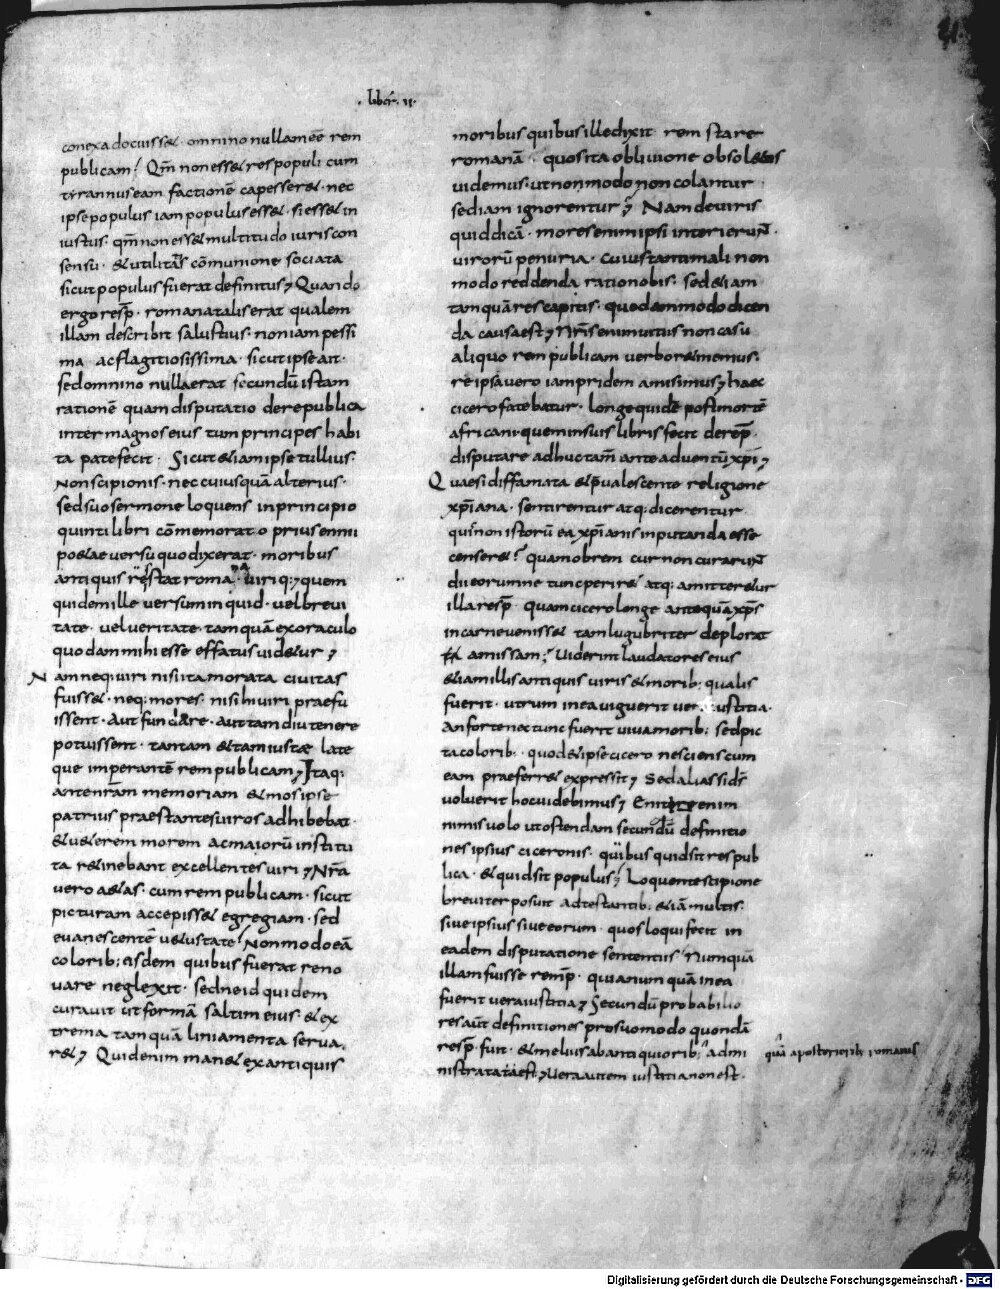 · liber · II ·
conexa docuisset · omnino nullam eē rem
publicam? Qm̄ non esset res populi cum
tyrannus eam factionē capesseret · nec
ipse populus iam populus esset · si esset in
iustus · qm̄ non esset multitudo iuris con
sensu · & utilitatis cōmunione sociata
sicut populus fuerat definitus; Quando
ergo resp̄ · romana talis erat qualem
illam describit salustius · non iam pessi
ma ac flagitiosissima · sicut ipse ait ·
sed omnino nulla erat secundū istam
rationē quam disputatio de re publica
inter magnos eius tum principes habi
ta patefecit · Sicut etiam ipse tullius ·
Non scipionis · nec cuiusquā alterius ·
sed suo sermone loquens in principio
quinti libri cōmemorato prius ennii
poetae versu quo dixerat · moribus
antiquis res stat romana viriq:; quem
quidem ille versum inquid · vel brevi
tate · vel veritate · tamquā ex oraculo
quodam mihi esse effatus videtur;
Nam neq: viri nisi ita morata civitas
fuisset · neq: mores · nisi hi viri praefu
issent · Aut fundare · aut tam diu tenere
potuissent · tantam & tam iustae late
que imperantē rem publicam; Itaq:
ante nr̄am memoriam & mos ipse
patrius praestantes viros adhibebat ·
& veterem morem ac maiorū institu
ta retinebant excellentes viri; Nr̄a
vero aetas · cum rem publicam · sicut
picturam accepisset egregiam · sed
evanescentē vetustate? Non modo eā
colorib: eisdem quibus fuerat reno
vare neglexit · sed ne id quidem
curavit ut formā saltim eius · & ex
trema tamquā liniamenta serva
ret; Quid enim manet ex antiquis
moribus quibus ille dixit rem stare
romanā · quos ita oblivione obsoletos
videmus · ut non modo non colantur
sed iam ignorentur; Nam de viris
quid dicā · mores enim ipsi interierunt ·
virorū penuria · cuius tanti mali non
modo reddenda ratio nobis · sed etiam
tamquā reis capitis · quodam modo dicen
da causa est; Nr̄is enim vitiis non casu
aliquo rem publicam verbo retinemus ·
re ipsa vero iam pridem amisimus; haec
cicero fatebatur · longe quidē post mortē
africani · quem in suis libris fecit de rep̄ ·
disputare adhuc tam̄ ante adventū xp̄i;
Quae si diffamata & p̄valescente religione
xp̄iana · sentirentur atq: dicerentur
quis non istorū ea xp̄ianis inputanda esse
censeret? quam obrem cur non curarunt
dii eorum ne tunc periret atq: amitteretur
illa resp̄ · quam cicero longe antequā xp̄s
in carne venisset tam lugubriter deplorat
amissam? Viderint laudatores eius
etiam illis antiquis viris & morib: qualis
fuerit · utrum in ea viguerit vera iustitia ·
An forte nec tunc fuerit viva morib: sed pic
ta colorib: · quod & ipse cicero nesciens cum
eam praeferret expressit; Sed alias si dr̄
voluerit hoc videbimus; enim
nim suo loco ut ostendam secundū definitio
nes ipsius ciceronis · quibus quid sit res pub
lica · & quid sit populus; Loquente scipione
breviter posuit adtestantib: etiā multis ·
sive ipsius sive eorum · quos loqui fecit in
eadem disputatione sententiis Numquā
illam fuisse remp̄ · quia numquā in ea
fuerit vera iustitia; Secundū probabilio
res aut̄ definitiones pro suo modo quondā
resp̄ fuit · & melius ab antiquiorib: admi
nistrata est; Vera autem iustitia non est ·
quā a posteriorib: romanis
Digitalisierung gefördert durch die Deutsche Forschungsgemeinschaft - DFG